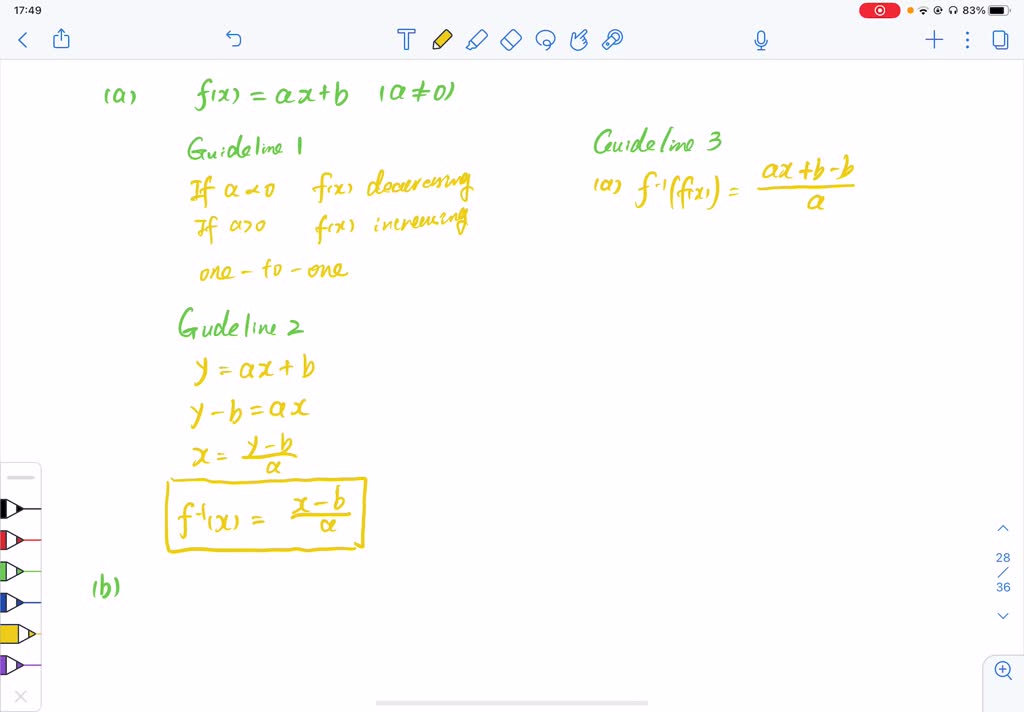 17:49
83%
(a) f(x) = ax+b (a≠0)
Guideline 1
If a<0 f(x) decreasing
If a>0 f(x) increasing
one-to-one
Gudeline 2
y = ax+b
y-b = ax
x = \frac{y-b}{a}
f⁻¹(x) = \frac{x-b}{a}
(b)
Guideline 3
(a) f⁻¹(f(x)) = \frac{ax+b-b}{a}
28
/
36